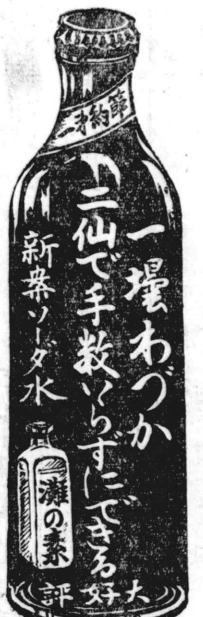 節約第一
一壜わづか
二仙で手数いらずにできる
新案ソーダ水
灘の素
大好評